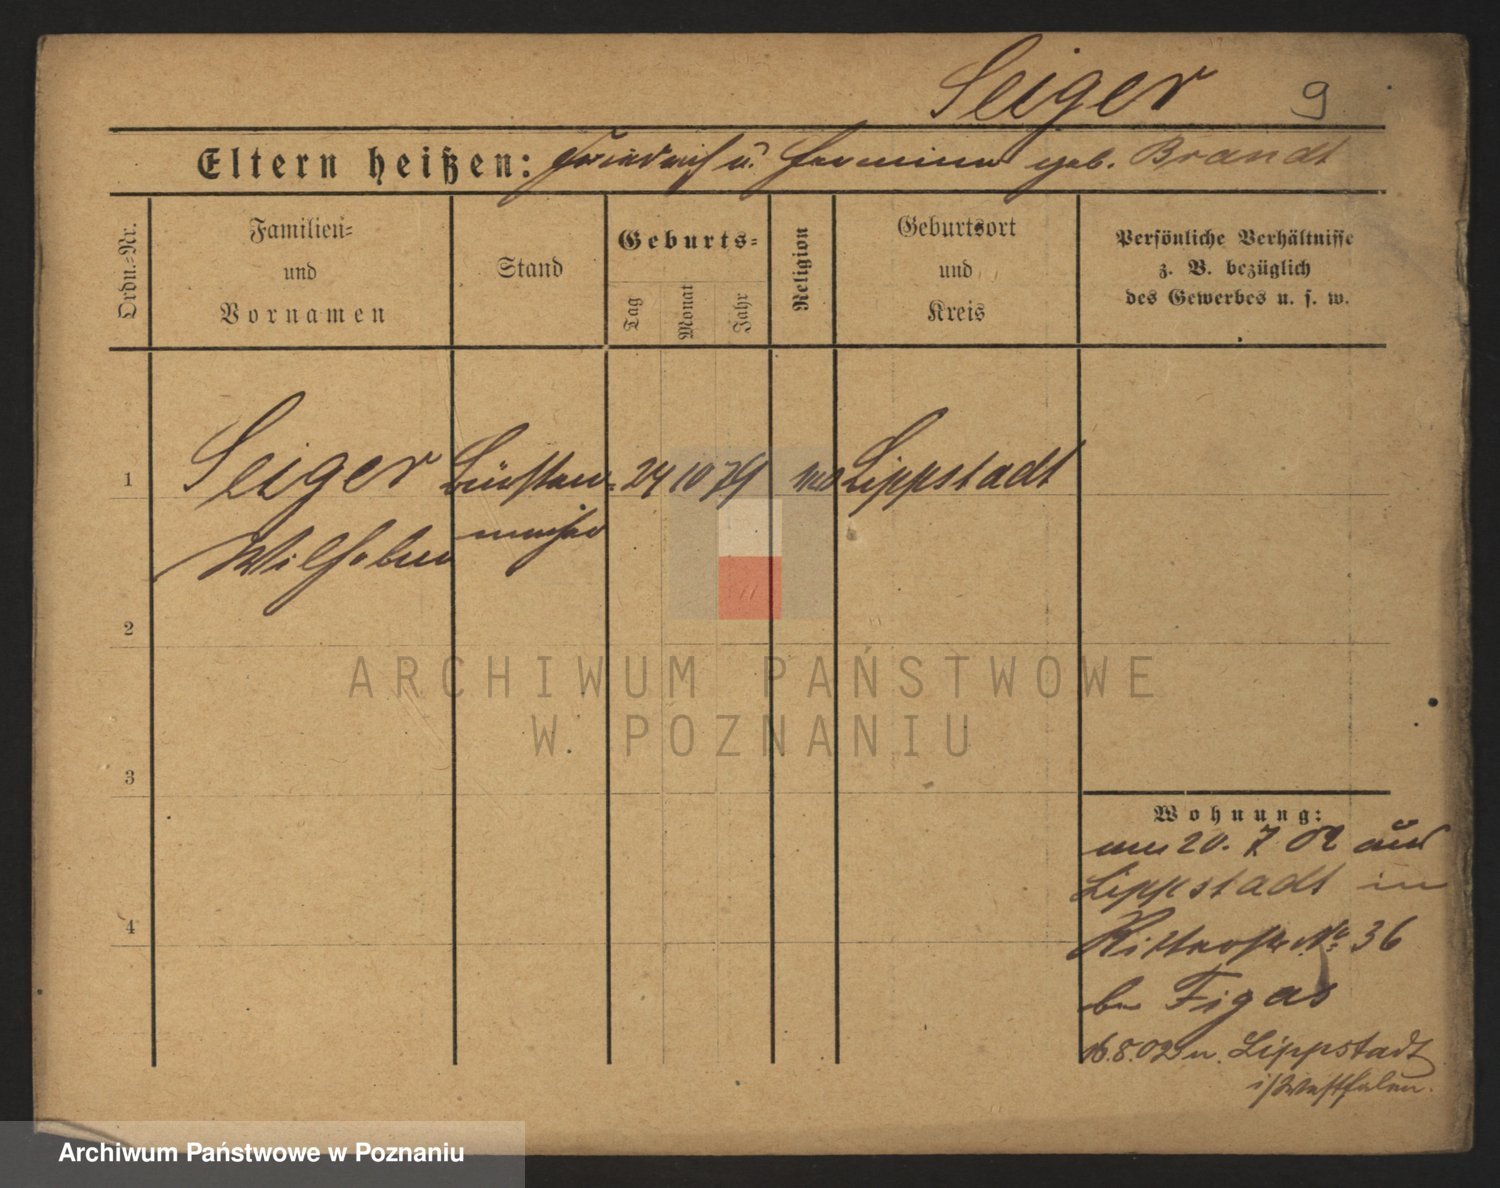 Seiger 9
Eltern heißen: Friedrich u. Hermine geb. Brandt
Ordn.-Nr.
Familien-
und
Vornamen
Stand
Geburts-
Tag
Monat
Jahr
Religion
Geburtsort
und
Kreis
Persönliche Verhältnisse
z. B. bezüglich
des Gewerbes u. s. w.
1 Seiger Bürsten- 24 10 79 Lippstadt
Wilhelm macher
2
ARCHIWUM PAŃSTWOWE
W POZNANIU
3
Wohnung:
am 20. 7 02 aus
Lippstadt in
Ritterstr. No 36
4
bei Figas
16.8.02 n. Lippstadt
i/Westfalen.
Archiwum Państwowe w Poznaniu